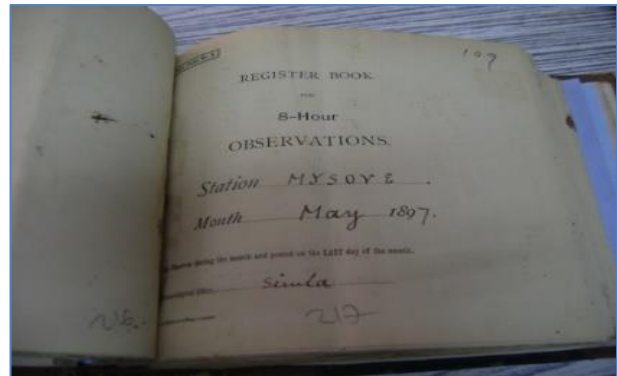 107
REGISTER BOOK
FOR
8-Hour
OBSERVATIONS.
Station MYSOVE .
Month May 1897.
during the month and posted on the LAST day of the month.
Simla
217